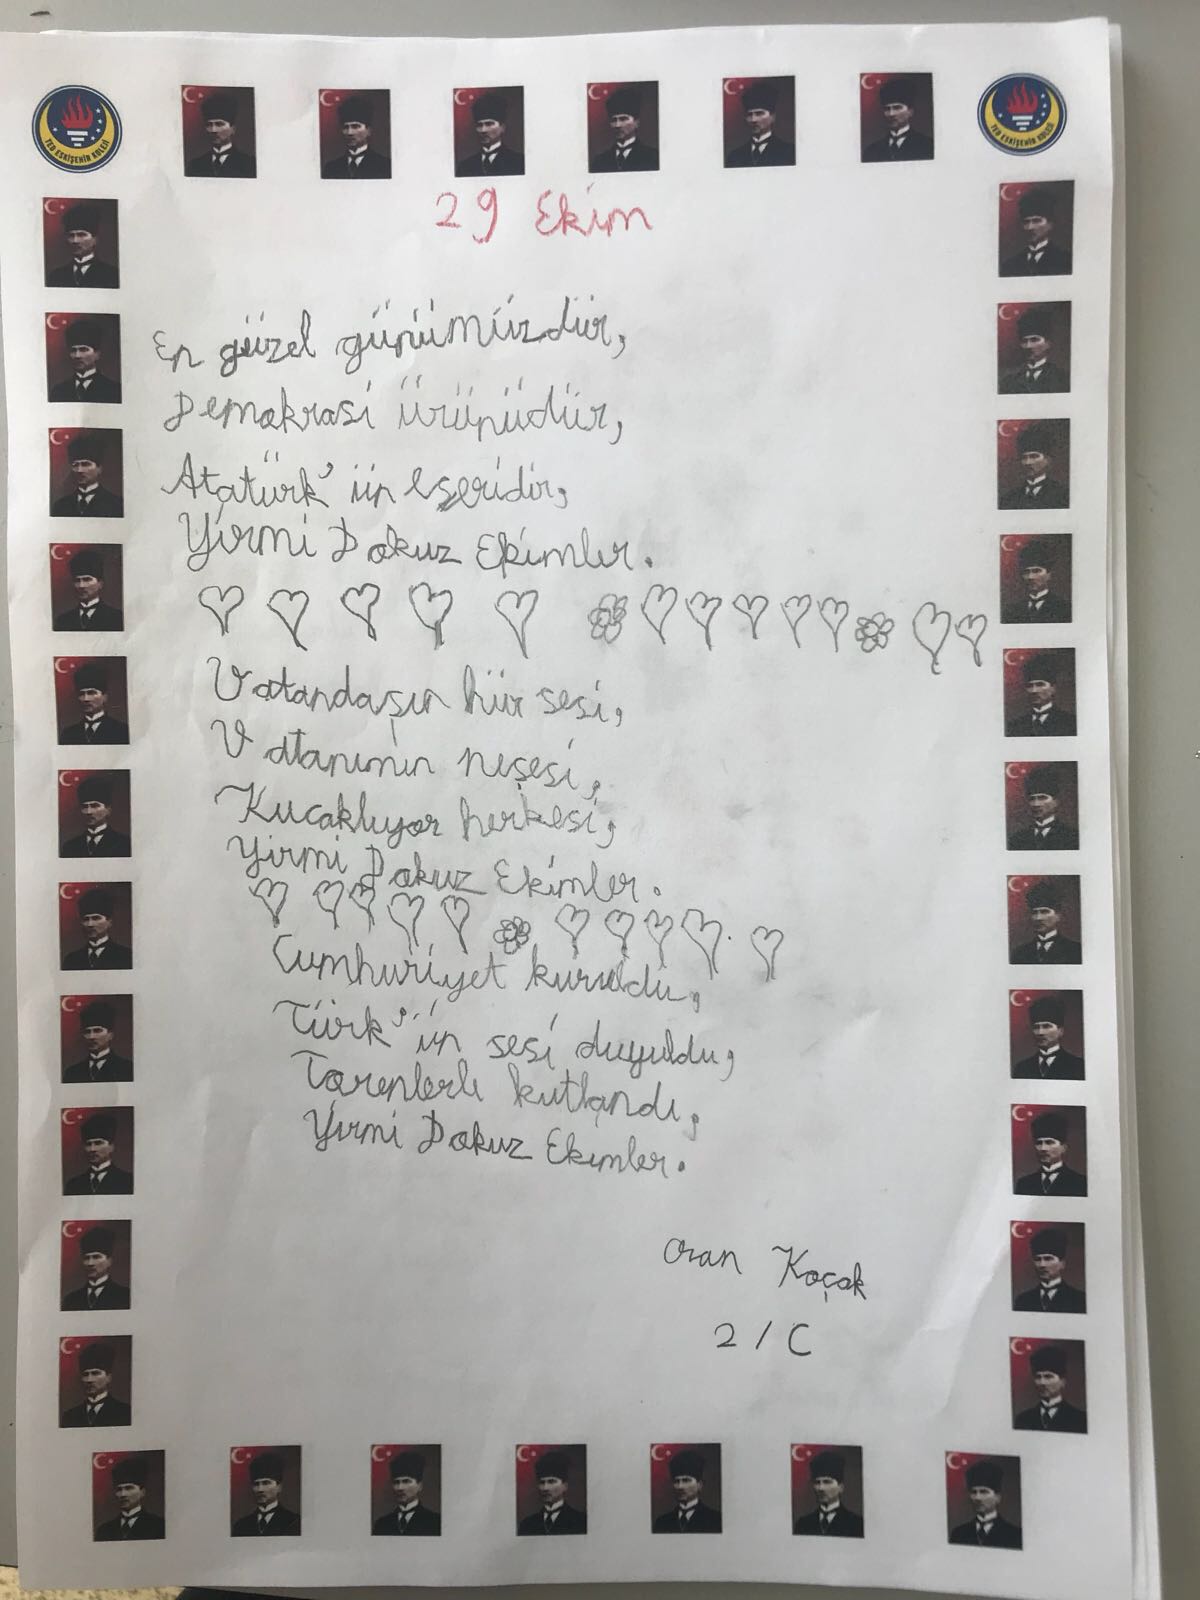 TED ESKİŞEHİR KOLEJİ
TED ESKİŞEHİR KOLEJİ
29 Ekim
En güzel günümüzdür,
Demokrasi ürünüdür,
Atatürk'ün eseridir,
Yirmi Dokuz Ekimler.
Vatandaşın hür sesi,
Vatanımın neşesi,
Kucaklıyor herkesi,
Yirmi Dokuz Ekimler.
Cumhuriyet kuruldu,
Türk'ün sesi duyuldu,
Törenlerle kutlandı,
Yirmi Dokuz Ekimler.
Koçak
2/C